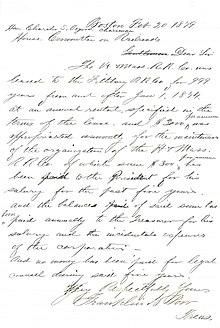 Boston Feb 20 1879
Hon Charles J. Chairman
House Committee on Railroads
Dear Sir
The Vt & Mass. R.R. Co. was
leased to the Fitchburg R.R. Co. for 999
years from and after Jan'y 1, 1874.
at an annual rental, specified in the
terms of the lease, and $ was
appropriated annually for the maintenance
of the organization of the Vt & Mass.
R.R. Co of which sum $300 has
been paid to the President for his
salary for the past five years.
and the balance of said sum has
been paid annually to the Treasurer for his
salary and the incidental expenses
of the corporation.
And no money has been paid for legal
counsel during said five years
Very Respectfully Yours
Franklin
Treas.